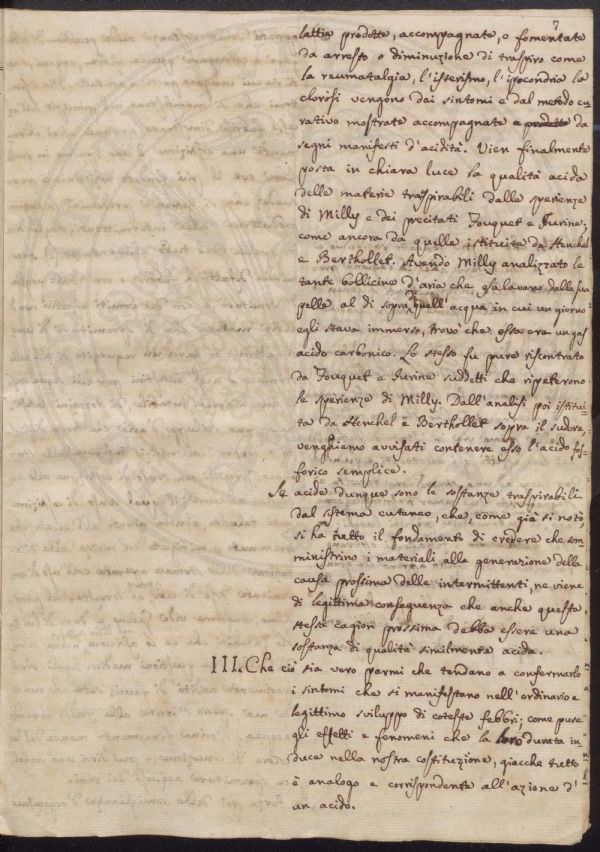 7
lattie prodotte, accompagnate, o fomentate
da arresto o diminuzione di traspiro come
la reumatalgia, l'isterismo, l'ipocondria la
clorosi vengono dai sintomi e dal metodo cu-
rativo mostrate accompagnate e prodotte da
segni manifesti d'acidità. Vien finalmente
posta in chiara luce la qualità acida
delle materie traspirabili dalle sperienze
di Milly e dei precitati Fouquet e Jurine;
come ancora da quelle istituite da Henchel
e Berthollet. Avendo Milly analizzato le
tante bollicine d'aria che esalavano dalla sua
pelle al di sopra quell'acqua in cui un giorno
egli stava immerso, trovò che essa era un gas
acido carbonico. Lo stesso fu pure riscontrato
da Fouquet e Jurine suddetti che ripeterono
le sperienze di Milly. Dall'analisi poi istitui-
ta da Henchel e Berthollet sopra il sudore,
venghiamo avvisati contenere esso l'acido fos-
forico semplice.
Se acide dunque sono le sostanze traspirabili
dal sistema cutaneo, che, come già si notò,
si ha tutto il fondamento di credere che som-
ministrino i materiali alla generazione della
causa prossima delle intermittenti, ne viene
di legittima conseguenza che anche questa
stessa cagion prossima debba essere una
sostanza di qualità similmente acida.
III. Che ciò sia vero parmi che tendano a confermarlo
i sintomi che si manifestano nell'ordinario e
legittimo sviluppo di coteste febbri; come pure
gli effetti e fenomeni che la loro durata in-
duce nella nostra costituzione, giacche tutto
è analogo e corrispondente all'azione d'
un acido.